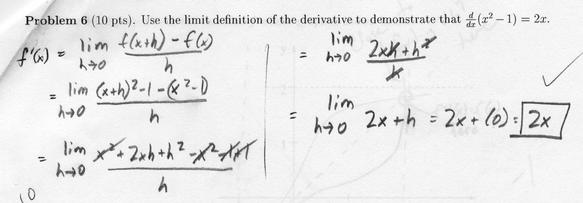 Problem 6 (10 pts). Use the limit definition of the derivative to demonstrate that d/dx (x² − 1) = 2x.
f'(x) = lim h→0 (f(x+h) − f(x))/h
= lim h→0 ((x+h)² −1 − (x² −1))/h
= lim h→0 (x² + 2xh + h² − x² −1+1)/h
10
= lim h→0 (2xh + h²)/h
= lim h→0 2x + h = 2x + (0) = 2x